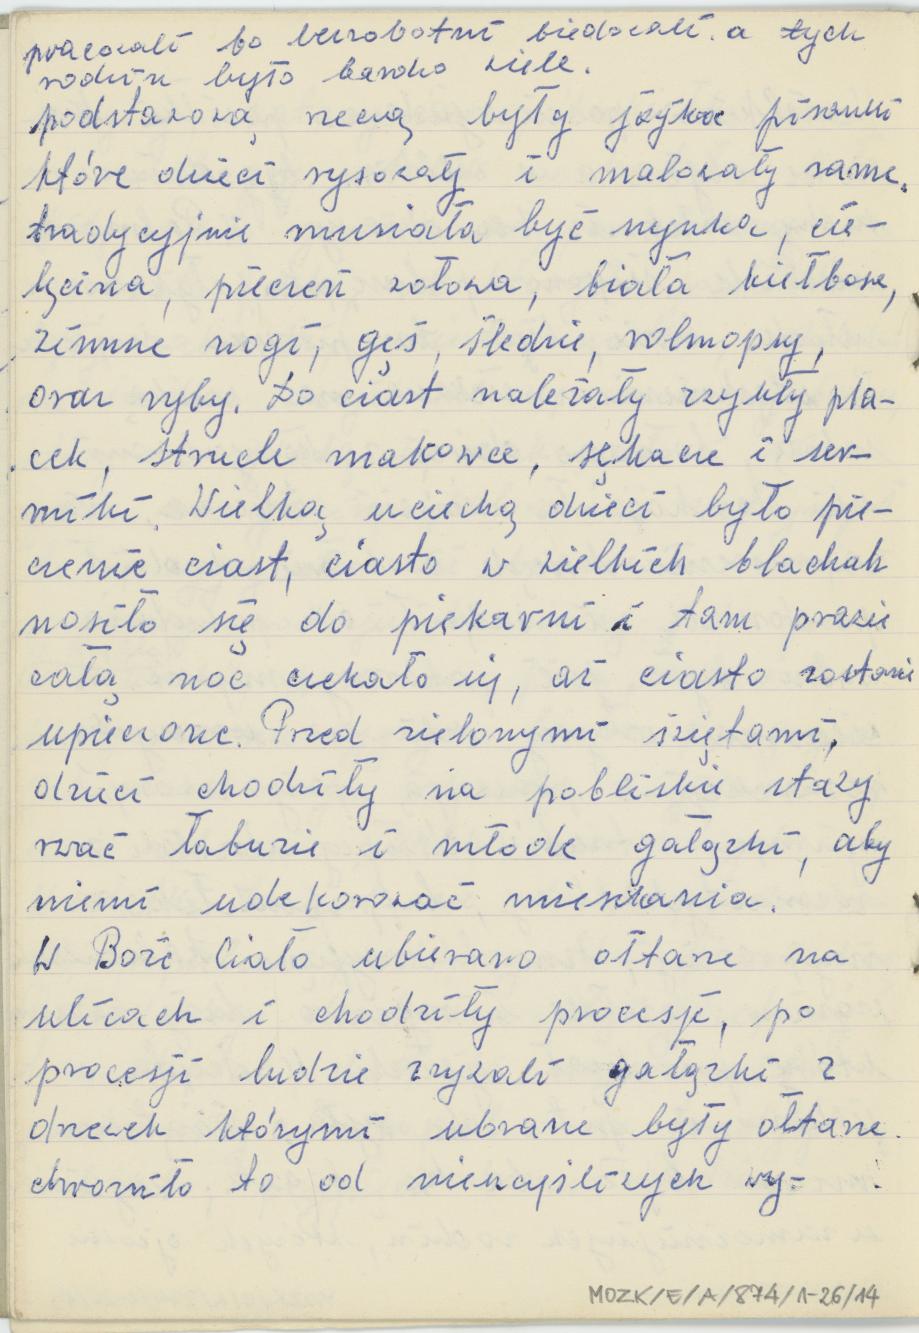 pracowali bo bezrobotni biedowali. a tych
rodzin było bardzo wiele.
podstawową rzeczą były jajka pisanki
które dzieci rysowały i malowały same.
tradycyjnie musiała być szynka, cie-
lęcina, pieczeń wołowa, biała kiełbasa,
zimne nogi, gęś, śledzie, rolmopsy,
oraz ryby. Do ciast należały zwykły pla-
cek, strucle makowce, sękacze i ser-
niki. Wielką uciechą dzieci było pie-
czenie ciast, ciasto w wielkich blachah
nosiło się do piekarni i tam prawie
całą noc czekało się, aż ciasto zostanie
upieczone. Przed zielonymi świętami,
dzieci chodziły na pobliskie stawy
rwać taburie i młode gałązki, aby
niemi udekorować mieszkania.
W Boże Ciało ubierano ołtarze na
ulicach i chodziły procesje, po
procesji ludzie zrywali gałązki z
drzewek którymi ubrane były ołtarze.
chroniło to od nieszczęśliwych wy-
MOZK/E/A/874/1-26/14